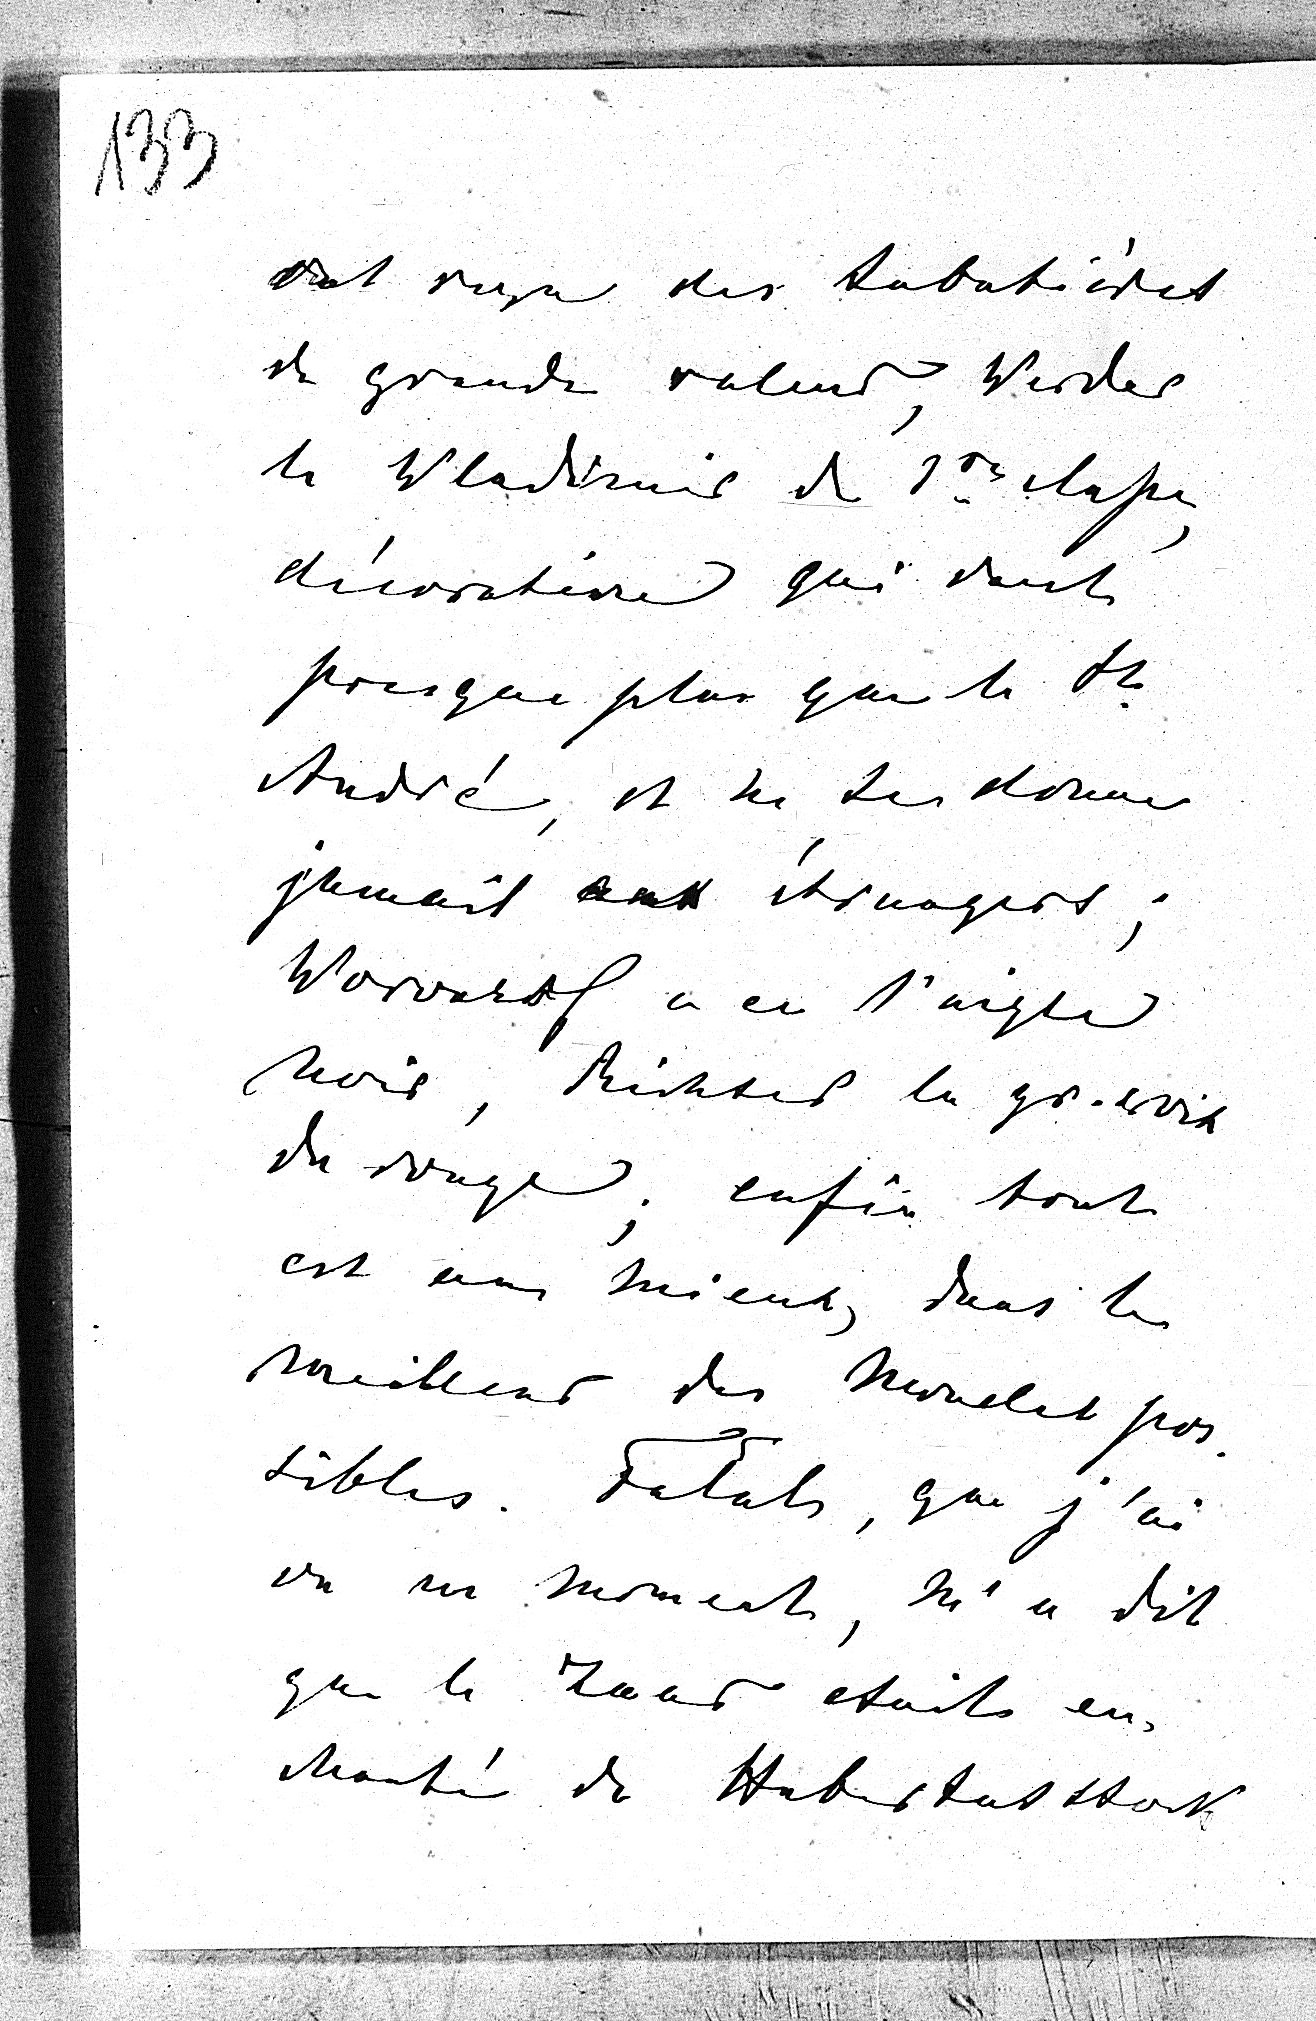 133
ont reçu des tabatières
de grande valeur, Werder
le Wladimir de 1re classe,
décoration qui vaut
presque plus que le St.
André, et ne se donne
jamais aux étrangers;
Worontzoff a eu l'aigle
noir, Richter la gr. croix
du rouge; enfin tout
est au mieux, dans le
meilleur des mondes pos-
sibles. que j'ai
vu un moment, m'a dit
que le Tzaar etait en-
chanté de Hubertusstock